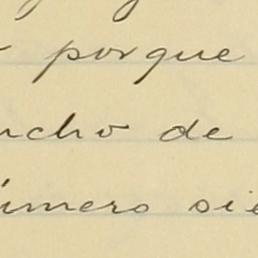 porque
ncho de
úmero sie